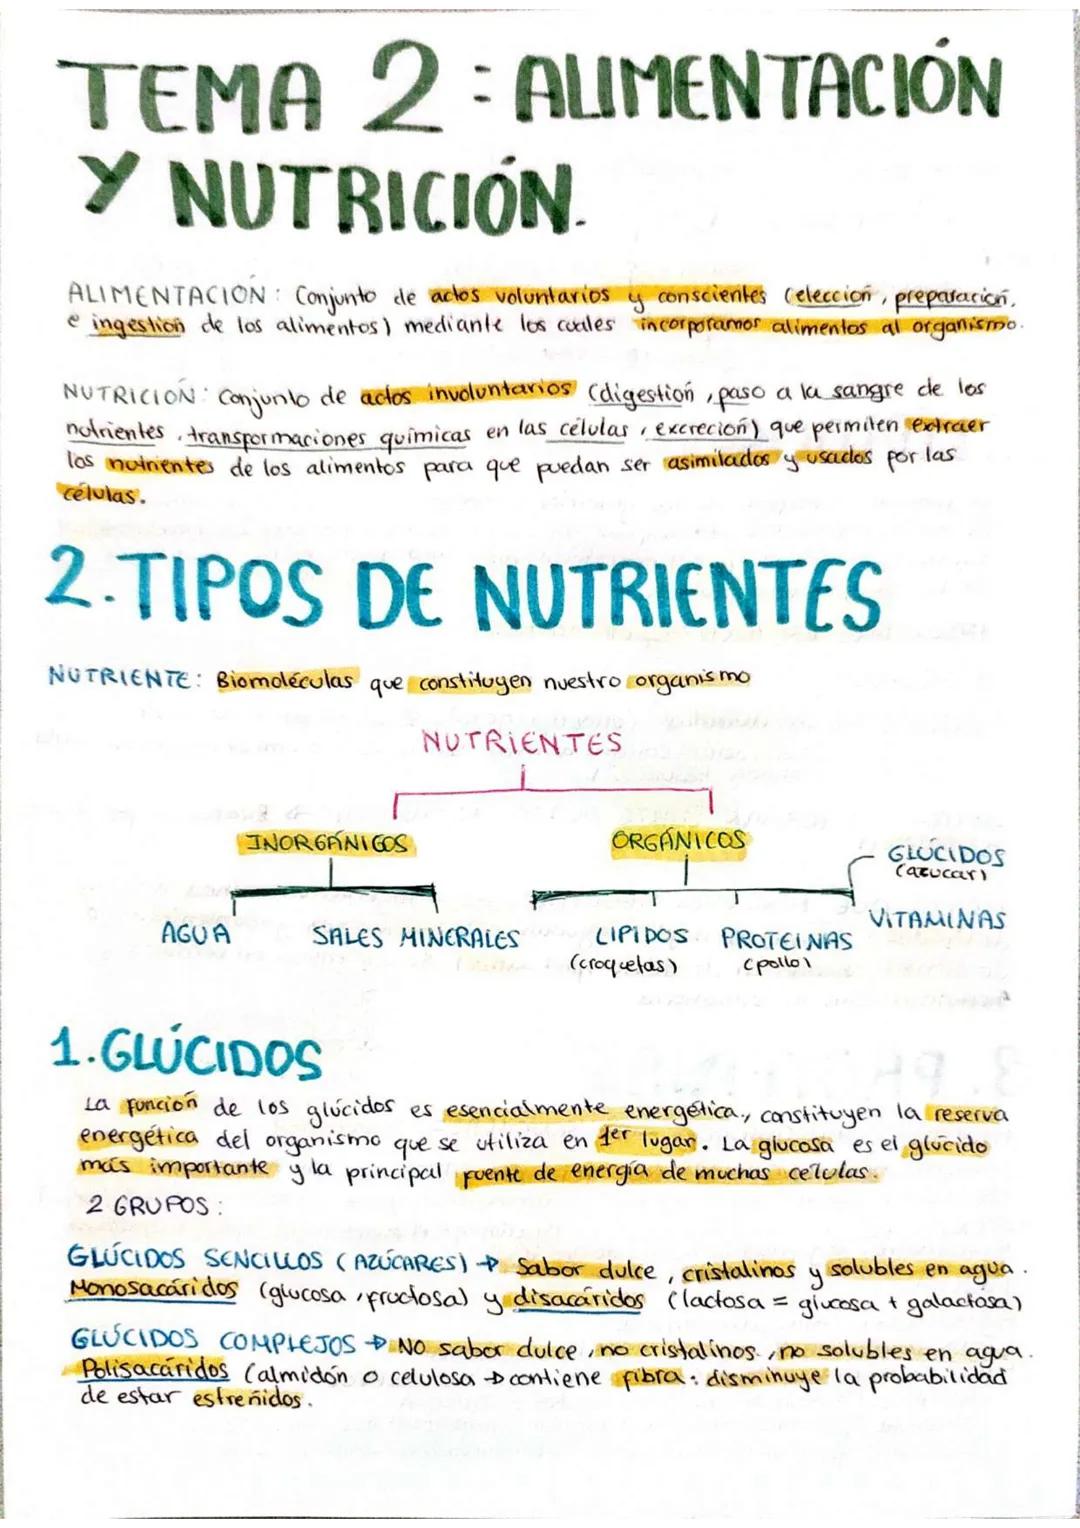 TEMA 2: ALIMENTACIÓN
Y NUTRICIÓN.
ALIMENTACIÓN: Conjunto de actos voluntarios y conscientes (elección, preparación,
e ingestión de los alimentos) mediante los cuales incorporamos alimentos al organismo.
NUTRICIÓN: Conjunto de actos involuntarios (digestión, paso a la sangre de los
nutrientes, transformaciones químicas en las células, excreción) que permiten extraer
los nutrientes de los alimentos para que puedan ser asimilados y usados por las
células.
2. TIPOS DE NUTRIENTES
NUTRIENTE: Biomoléculas que constituyen nuestro organismo
NUTRIENTES
INORGÁNICOS
ORGÁNICOS
GLÚCIDOS
(azucar)
AGUA
SALES MINERALES
LIPIDOS
(croquetas)
PROTEINAS
(pollo)
VITAMINAS
1. GLÚCIDOS
La función de los glúcidos es esencialmente energética., constituyen la reserva
energética del organismo que se utiliza en 1er lugar. La glucosa es el glúcido
más importante y la principal fuente de energía de muchas células.
2 GRUPOS:
GLÚCIDOS SENCILLOS (AZÚCARES) → Sabor dulce, cristalinos y solubles en agua.
Monosacáridos (glucosa, fructosa) y disacáridos (lactosa = glucosa + galactosa)
GLÚCIDOS COMPLEJOS → NO sabor dulce, no cristalinos, no solubles en agua.
Polisacáridos (almidón o celulosa → contiene fibra: disminuye la probabilidad
de estar estreñidos.